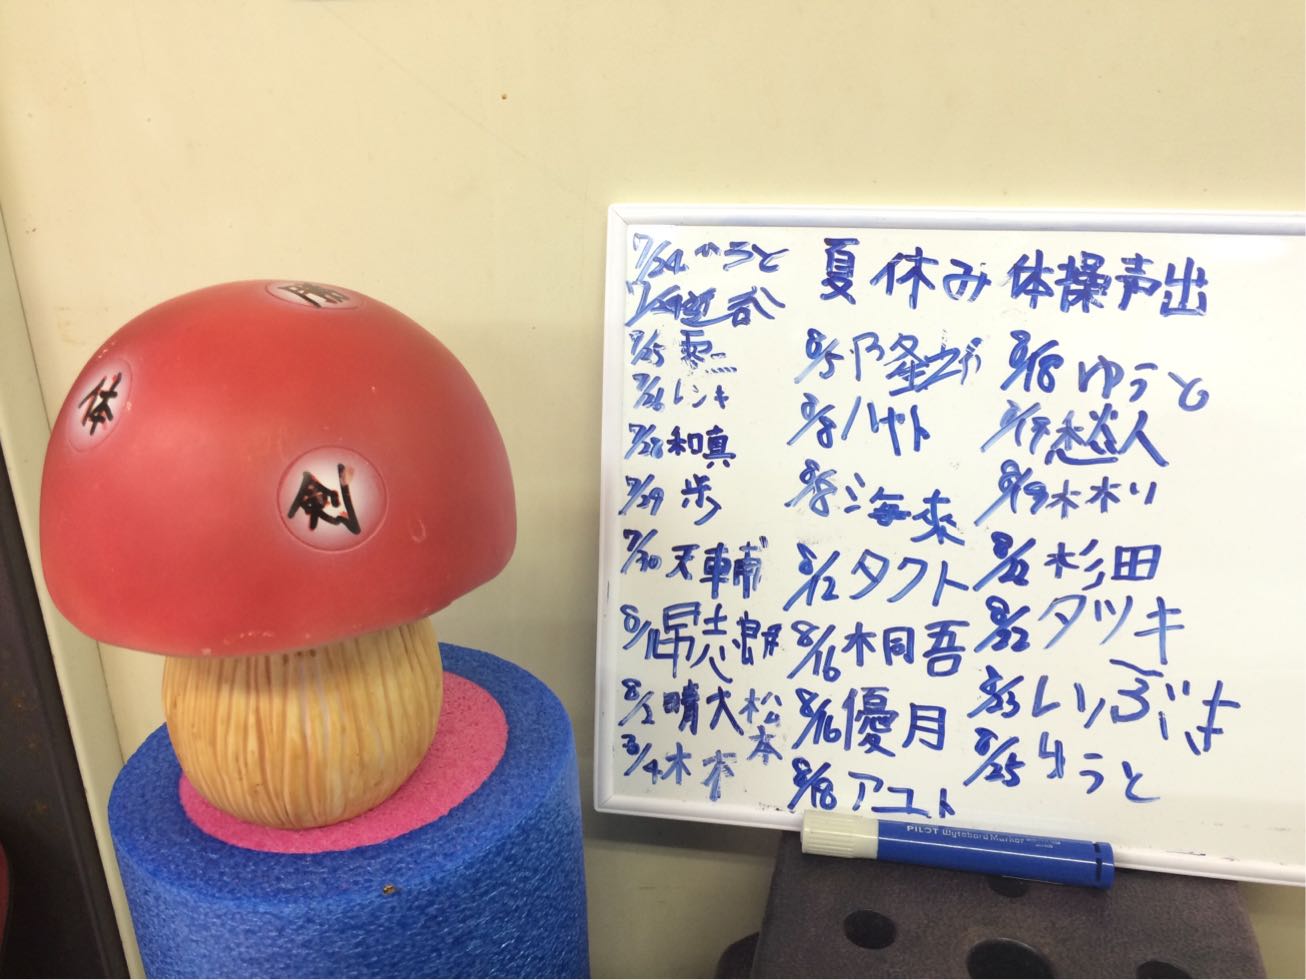 勝
体
剣
夏休み体操声出
7/24 かうと
7/24
7/25
7/26 レンキ
7/28 和真
7/29 歩
7/30 天輔
8/1 帰志郎
8/2 晴大
8/4 木木
松本
8/5 隆之介
8/8 ハヤト
8/8 海来
8/12 タクト
8/16 桐吾
8/16 優月
8/18 アユト
8/18 ゆうと
8/19 悠人
8/19 木木リ
8/22 杉田
8/22 タツキ
8/23 いぶき
8/25 うと
PILOT Wyteboard Marker